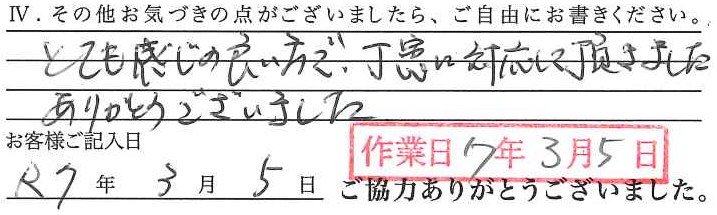 Ⅳ.その他お気づきの点がございましたら、ご自由にお書きください。
とても感じの良い方で、丁寧に対応して頂きました
ありがとうございました
お客様ご記入日
作業日 7年 3月 5日
R7 年 3 月 5 日 ご協力ありがとうございました。